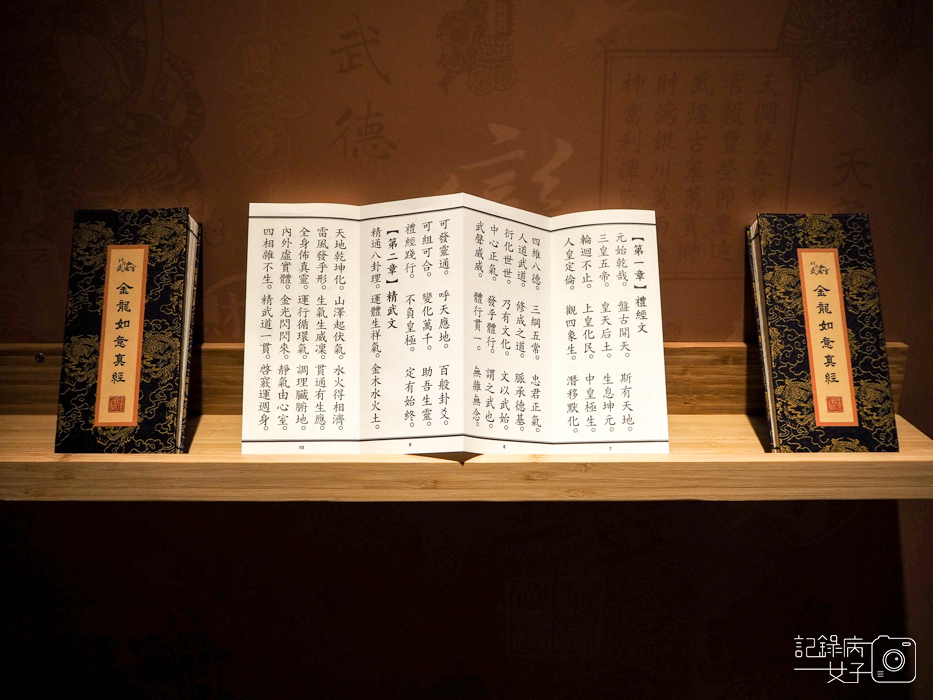 武德
金龍如意真經
【第一章】禮經文
元始乾哉。盤古開天。斯有天地。
三皇五帝。皇天后土。生息坤元。
輪迴不止。上皇化民。中皇極生。
人皇定倫。觀四象生。潛移默化。
四維八德。三綱五常。忠君正氣。
人道武道。修成之道。脈承德基。
衍化世世。乃有文化。文以武始。
中心正氣。發乎體行。謂之武也。
武聲威威。體行貫一。無雜無念。
可發靈通。呼天應地。百般卦爻。
可組可合。變化萬千。助吾生靈。
禮經踐行。不負皇極。定有始終。
【第二章】精武文
精通八卦理。運體生祥氣。金木水火土。
天地乾坤化。山澤起伏氣。水火得相濟。
雷風發乎形。生氣生威凜。貫通有生應。
全身佈真靈。運行循環氣。調理臟腑地。
內外虛實體。金光閃閃來。靜氣由心室。
四相雜不生。精武道一貫。啓襄運週身。
7
8
9
10
金龍如意真經
記錄病女子